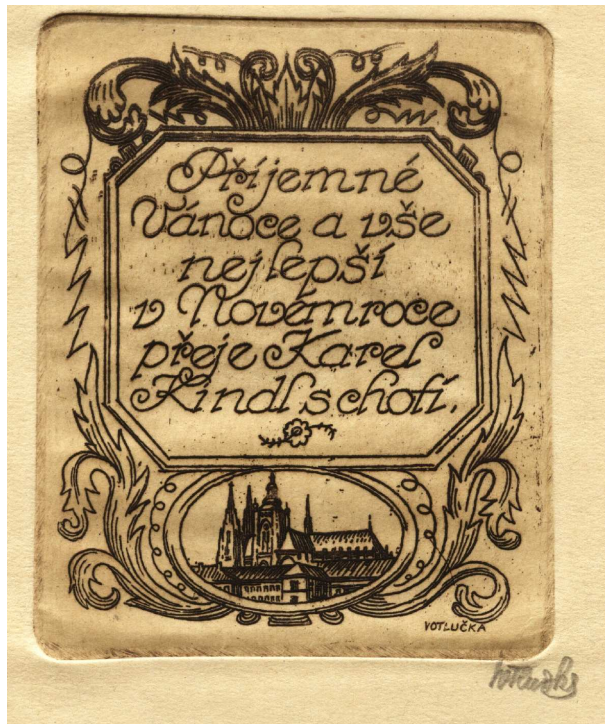 Příjemné
Vánoce a vše
nejlepší
v Novém roce
přeje Karel
Kindl s chotí.
VOTLUČKA